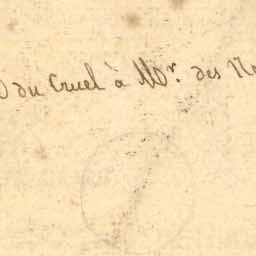 du Cruel à Mr. des